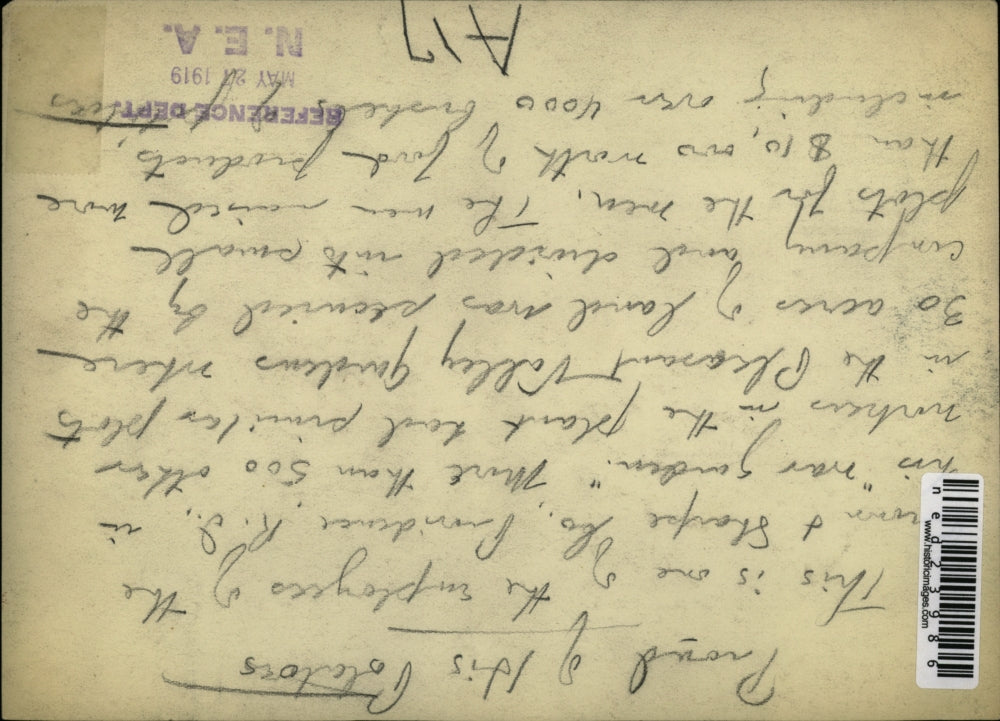 Proud of His Potatoes
This is one of the employees of the
Brown & Sharpe Co., Providence, R.I., in
his "war garden." More than 500 other
workers in the plant had similar plots
in the Pleasant Valley gardens where
30 acres of land was planned by the
company and divided into small
plots for the men. The men raised more
than $10,000 worth of food products,
including over 4000 bushels of potatoes
A17
REFERENCE DEPT.
MAY 27 1919
N. E. A.
www.historicimages.com
n e d 2 3 9 8 6